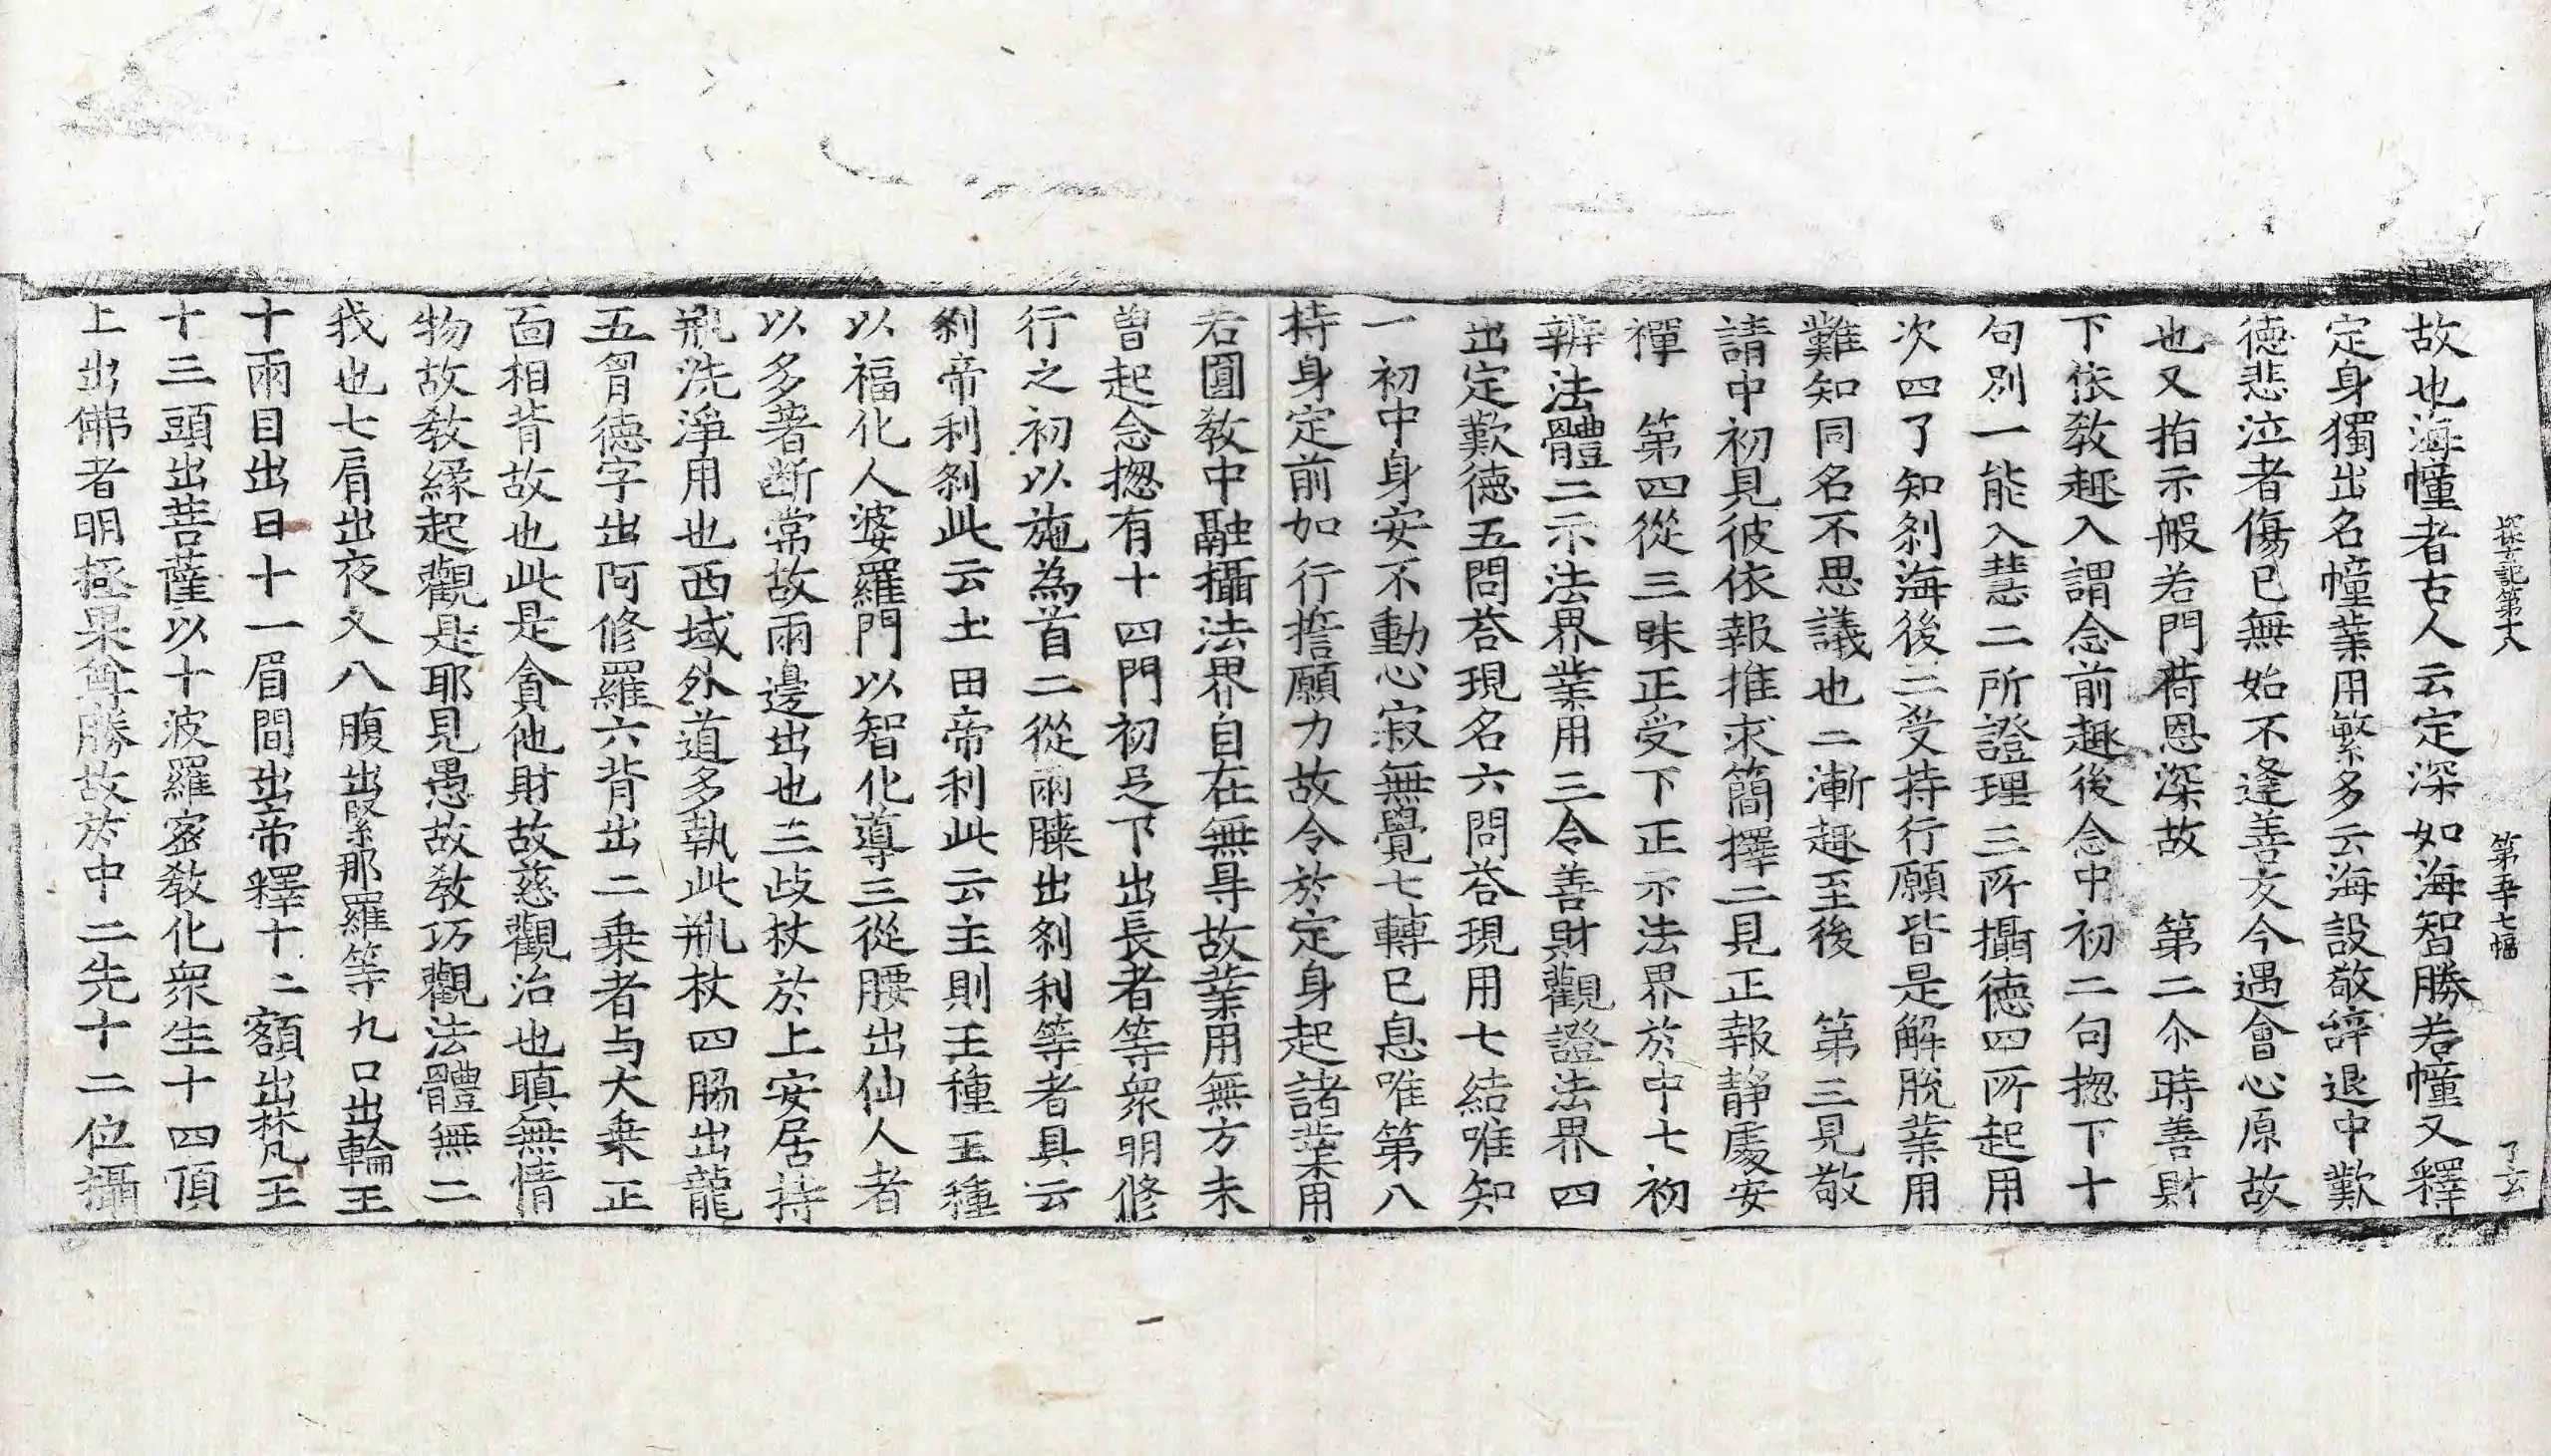 探玄記第十八 第五十七幅 了玄
故也海幢者古人云定深如海智勝若幢又釋
定身獨出名幢業用繁多云海設敬辞退中歎
徳悲泣者傷已無始不逢善友今遇會心原故
也又指示般若門荷恩深故 第二尒時善財
下依敎趣入謂念前趣後念中初二句揔下十
句別一能入慧二所證理三所攝徳四所起用
次四了知刹海後二受持行願皆是解脫業用
難知同名不思議也二漸趣至後 第三見敬
請中初見彼依報推求簡擇二見正報靜處安
禪 第四從三昧正受下正示法界於中七初
辨法體二示法界業用三令善財觀證法界四
出定歎徳五問荅現名六問荅現用七結唯知
一初中身安不動心寂無覺七轉已息唯第八
持身定前如行誓願力故令於定身起諸業用
若圓敎中融攝法界自在無㝵故業用無方未
曽起念揔有十四門初足下出長者等衆明修
行之初以施為首二從兩膝出刹利等者具云
刹帝利刹此云土田帝利此云主則王種王種
以福化人婆羅門以智化導三從腰出仙人者
以多著断常故兩邊出也三歧杖於上安居持
瓶洗淨用也西域外道多執此瓶杖四脇出龍
五胷德字出阿修羅六背出二乗者与大乗正
面相背故也此是貪他財故慈觀治也瞋無情
物故敎緣起觀是耶見愚故敎巧觀法體無二
我也七肩出夜叉八腹出緊那羅等九口出輪王
十兩目出日十一眉間出帝釋十二額出梵王
十三頭出菩薩以十波羅密敎化衆生十四頂
上出佛者明極果尊勝故於中二先十二位攝